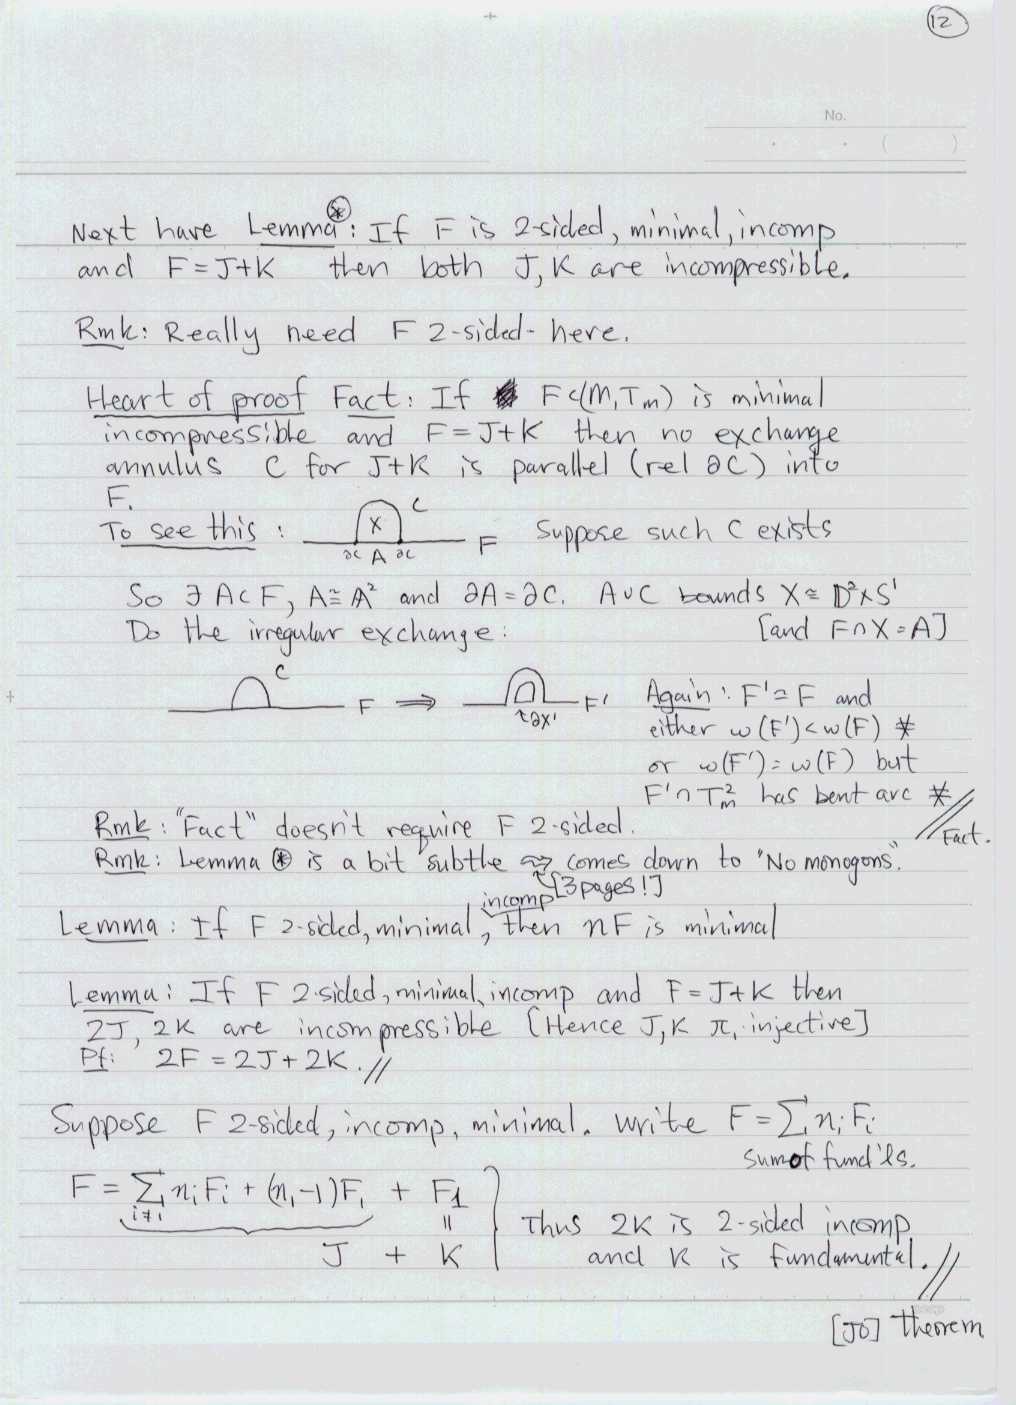 12
No.
Next have Lemma⊛: If F is 2-sided, minimal, incomp
and F = J+K then both J, K are incompressible.
Rmk: Really need F 2-sided- here.
Heart of proof Fact: If F⊂(M,Tm) is minimal
incompressible and F=J+K then no exchange
annulus C for J+K is parallel (rel ∂C) into
F.
To see this : X C ∂C A ∂C F Suppose such C exists
So ∃ A⊂F, A≅A² and ∂A=∂C. A∪C bounds X≅D²×S¹
Do the irregular exchange: [and F∩X=A]
C F ⇒ ↑∂X' F'
Again: F'≃F and
either w(F')<w(F) ※
or w(F')=w(F) but
F'∩T²m has bent arc ※ // Fact.
Rmk: "Fact" doesn't require F 2-sided.
Rmk: Lemma ⊛ is a bit subthe ⇝ comes down to "No monogons".
[3 pages!]
Lemma: If F 2-sided, minimal, incomp then nF is minimal
Lemma: If F 2-sided, minimal, incomp and F=J+K then
2J, 2K are incompressible [Hence J,K π₁-injective]
Pf: 2F = 2J+2K.//
Suppose F 2-sided, incomp, minimal. Write F=∑niFi
sum of fund'ls.
F = ∑i≠1 niFi + (n₁-1)F₁ + F₁
J + K
Thus 2K is 2-sided incomp
and K is fundamental.//
[JO] theorem